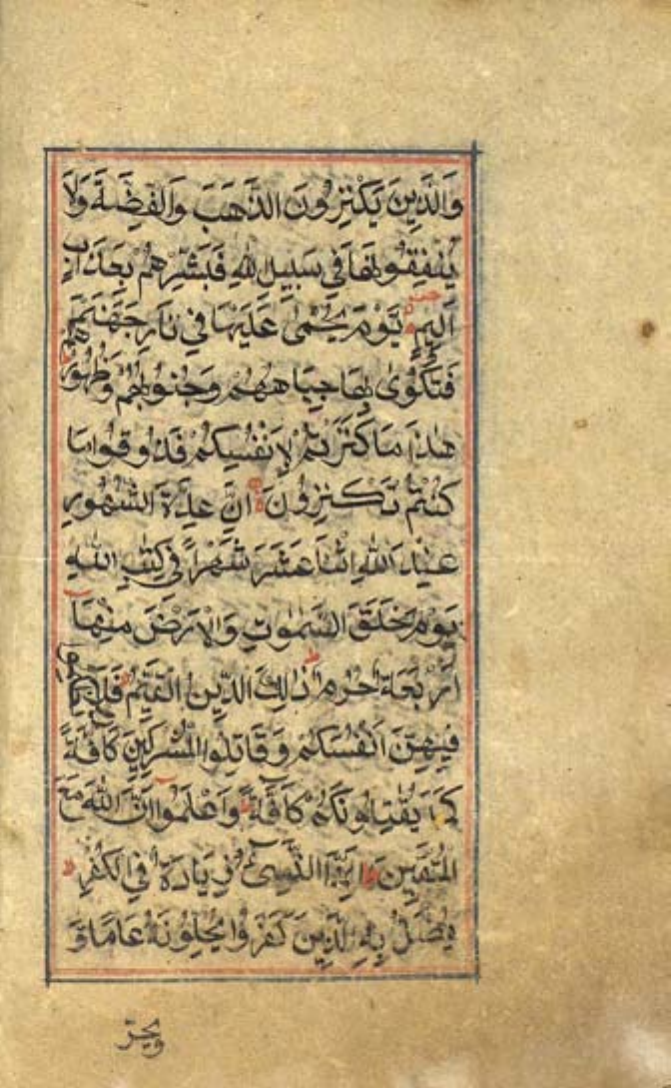 وَالَّذِينَ يَكْنِزُونَ الذَّهَبَ وَالْفِضَّةَ وَلَا
يُنْفِقُونَهَا فِي سَبِيلِ اللهِ فَبَشِّرْهُمْ بِعَذَابٍ
اَلِيمٍ يَوْمَ يُحْمٰى عَلَيْهَا فِي نَارِ جَهَنَّمَ
فَتُكْوٰى بِهَا جِبَاهُهُمْ وَجُنُوبُهُمْ وَظُهُورُهُمْ
هٰذَا مَا كَنَزْتُمْ لِاَنْفُسِكُمْ فَذُوقُوا مَا
كُنْتُمْ تَكْنِزُونَ اِنَّ عِدَّةَ الشُّهُورِ
عِنْدَ اللهِ اثْنَا عَشَرَ شَهْرًا فِي كِتٰبِ اللهِ
يَوْمَ خَلَقَ السَّمٰوٰتِ وَالْاَرْضَ مِنْهَا
اَرْبَعَةٌ حُرُمٌ ذَالِكَ الدِّينُ الْقَيِّمُ فَلَا
فِيهِنَّ اَنْفُسَكُمْ وَقَاتِلُوا الْمُشْرِكِينَ كَافَّةً
كَمَا يُقَاتِلُونَكُمْ كَافَّةً وَاعْلَمُوا اَنَّ اللهَ مَعَ
الْمُتَّقِينَ اِنَّمَا النَّسِيءُ زِيَادَةٌ فِي الْكُفْرِ
يُضَلُّ بِهِ الَّذِينَ كَفَرُوا يُحِلُّونَهُ عَامًا وَ
ويحر